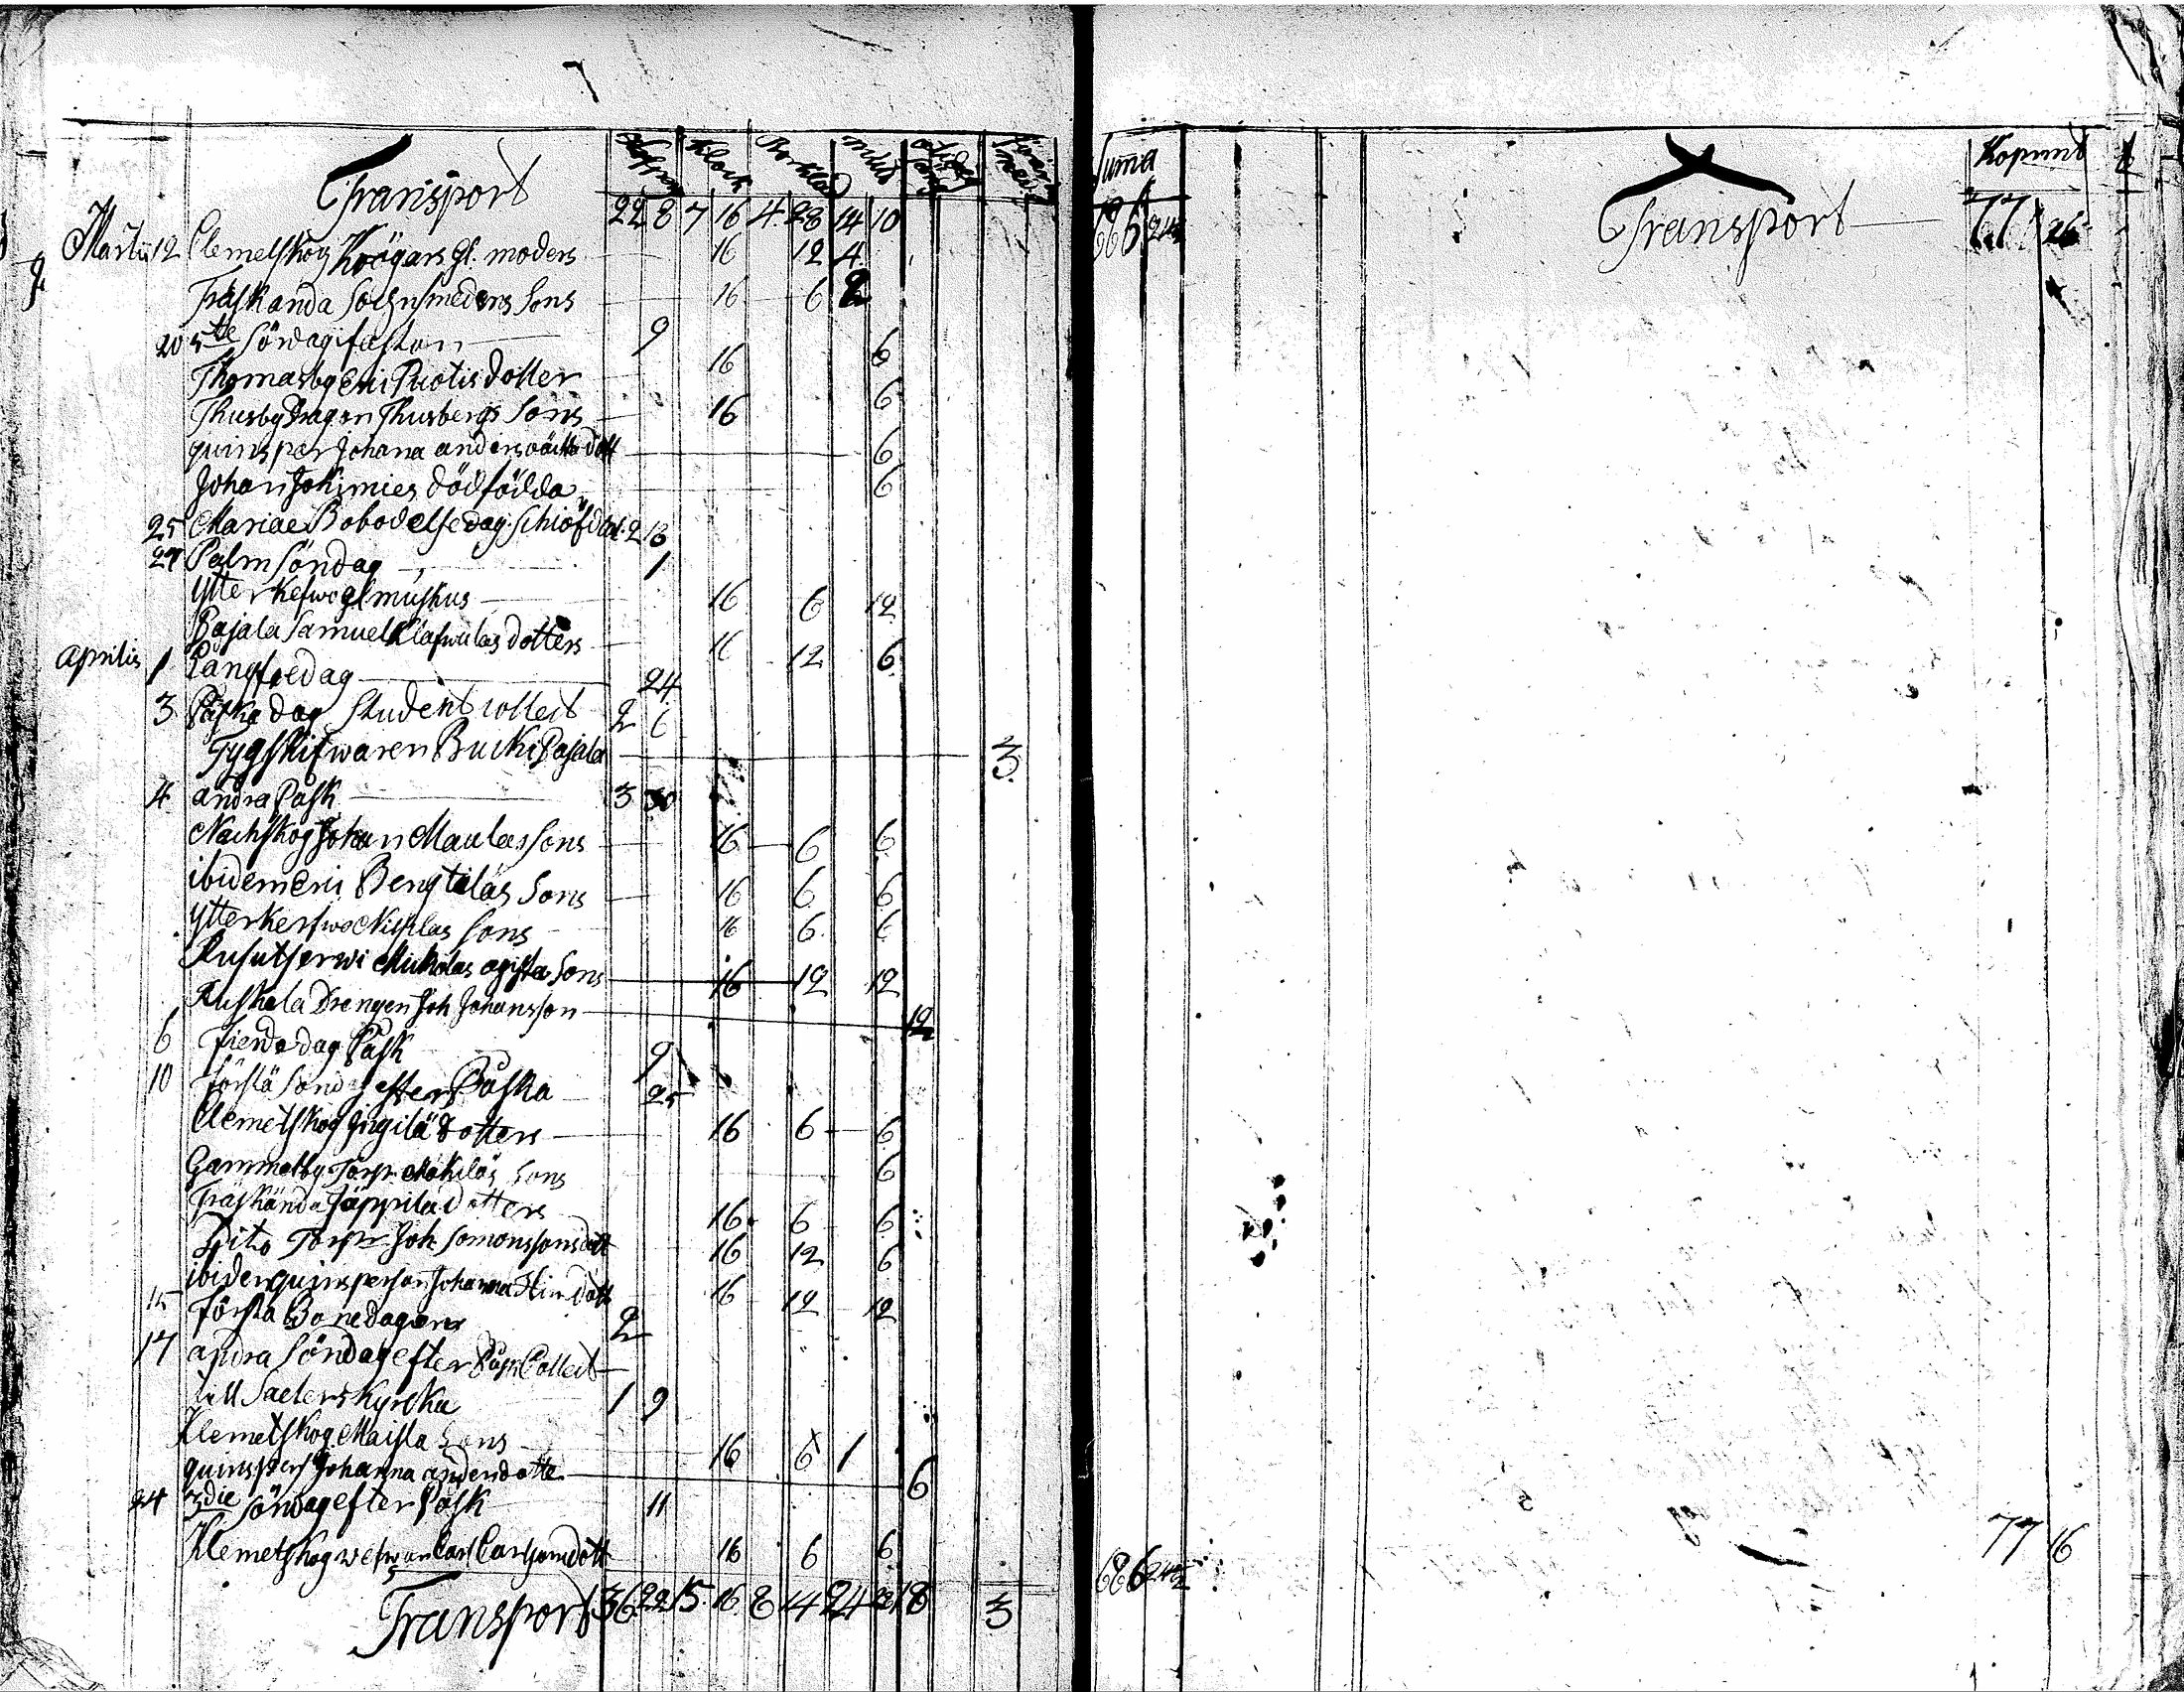 7
Klock Borklåd
Transport 22 8 7 16 4 28 14 10
Martii 12 Clemetskog Krögars gl. moders 16 12 4
Träskanda Sochnsmedens Sons 16 6 2
20 5tte Söndag i fastan 9
Thomasby Eric Puotis dotter 16 6
Thusby Dragon Thusbergs Sons 16 6
quinsper Johana anders dott 6
Johan Jokimies dödfödda 6
25 Mariae Bobodelse dag 2 13
27 Palm Söndag 1
Ytterkefwo gl. 16 6 12
Pajala Samuel dotters 16 12 6
Aprilis 1 Långfredag 24
3 Påska dag Student Collect 2 6
Pajala 3
4 andra Påsk 3 30
Nackskog Johan Maulas Sons 16 6 6
ibidem Eric Bengtilas Sons 16 6 6
Ytterkerfwo Nicklas Sons 16 6 6
Rusutjerwi Sons 16 12 12
Ruskela Drengen Joh Johansson 12
6 fierde dag Påsk 9
10 första Sönd efter Påska 25
Clemetskog Jirgilä Dotters 16 6 6
Gammelby Torp. Mäkiläs Sons 6
Träskända Jäppilä dotters 16 6 6
Dito Torpr Joh Somonssons dott 16 12 6
ibidem quinsperson Johanna dott 16 12 12
15 första Bönedagen 2
17 andra Söndag efter Påsk Collect
till Saeters Kyrcka 1 9
Klemetskog Maisla Sons 16 6 1
quinspers Johanna anderdotte 6
24 3die Söndag efter Påsk 11
Klemetskog Carl Carlsson dott 16 6 6
Transport 36 22 15 16 8 14 24 18 3
Suma
686 24½
Transport 77 26
686 24½
77 16